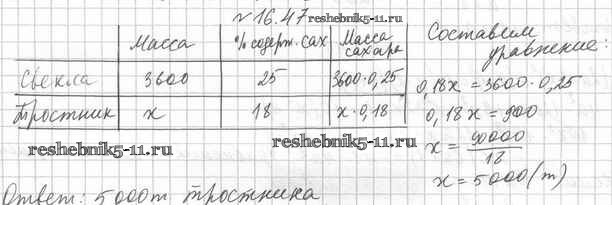 №16.47 reshebnik5-11.ru
Масса % содерж. сах Масса сахара
Свекла 3600 25 3600·0,25
Тростник x 18 x·0,18
reshebnik5-11.ru reshebnik5-11.ru
Составим уравнение:
0,18x = 3600·0,25
0,18x = 900
x = 90000/18
x = 5000 (т)
Ответ: 5000т тростника